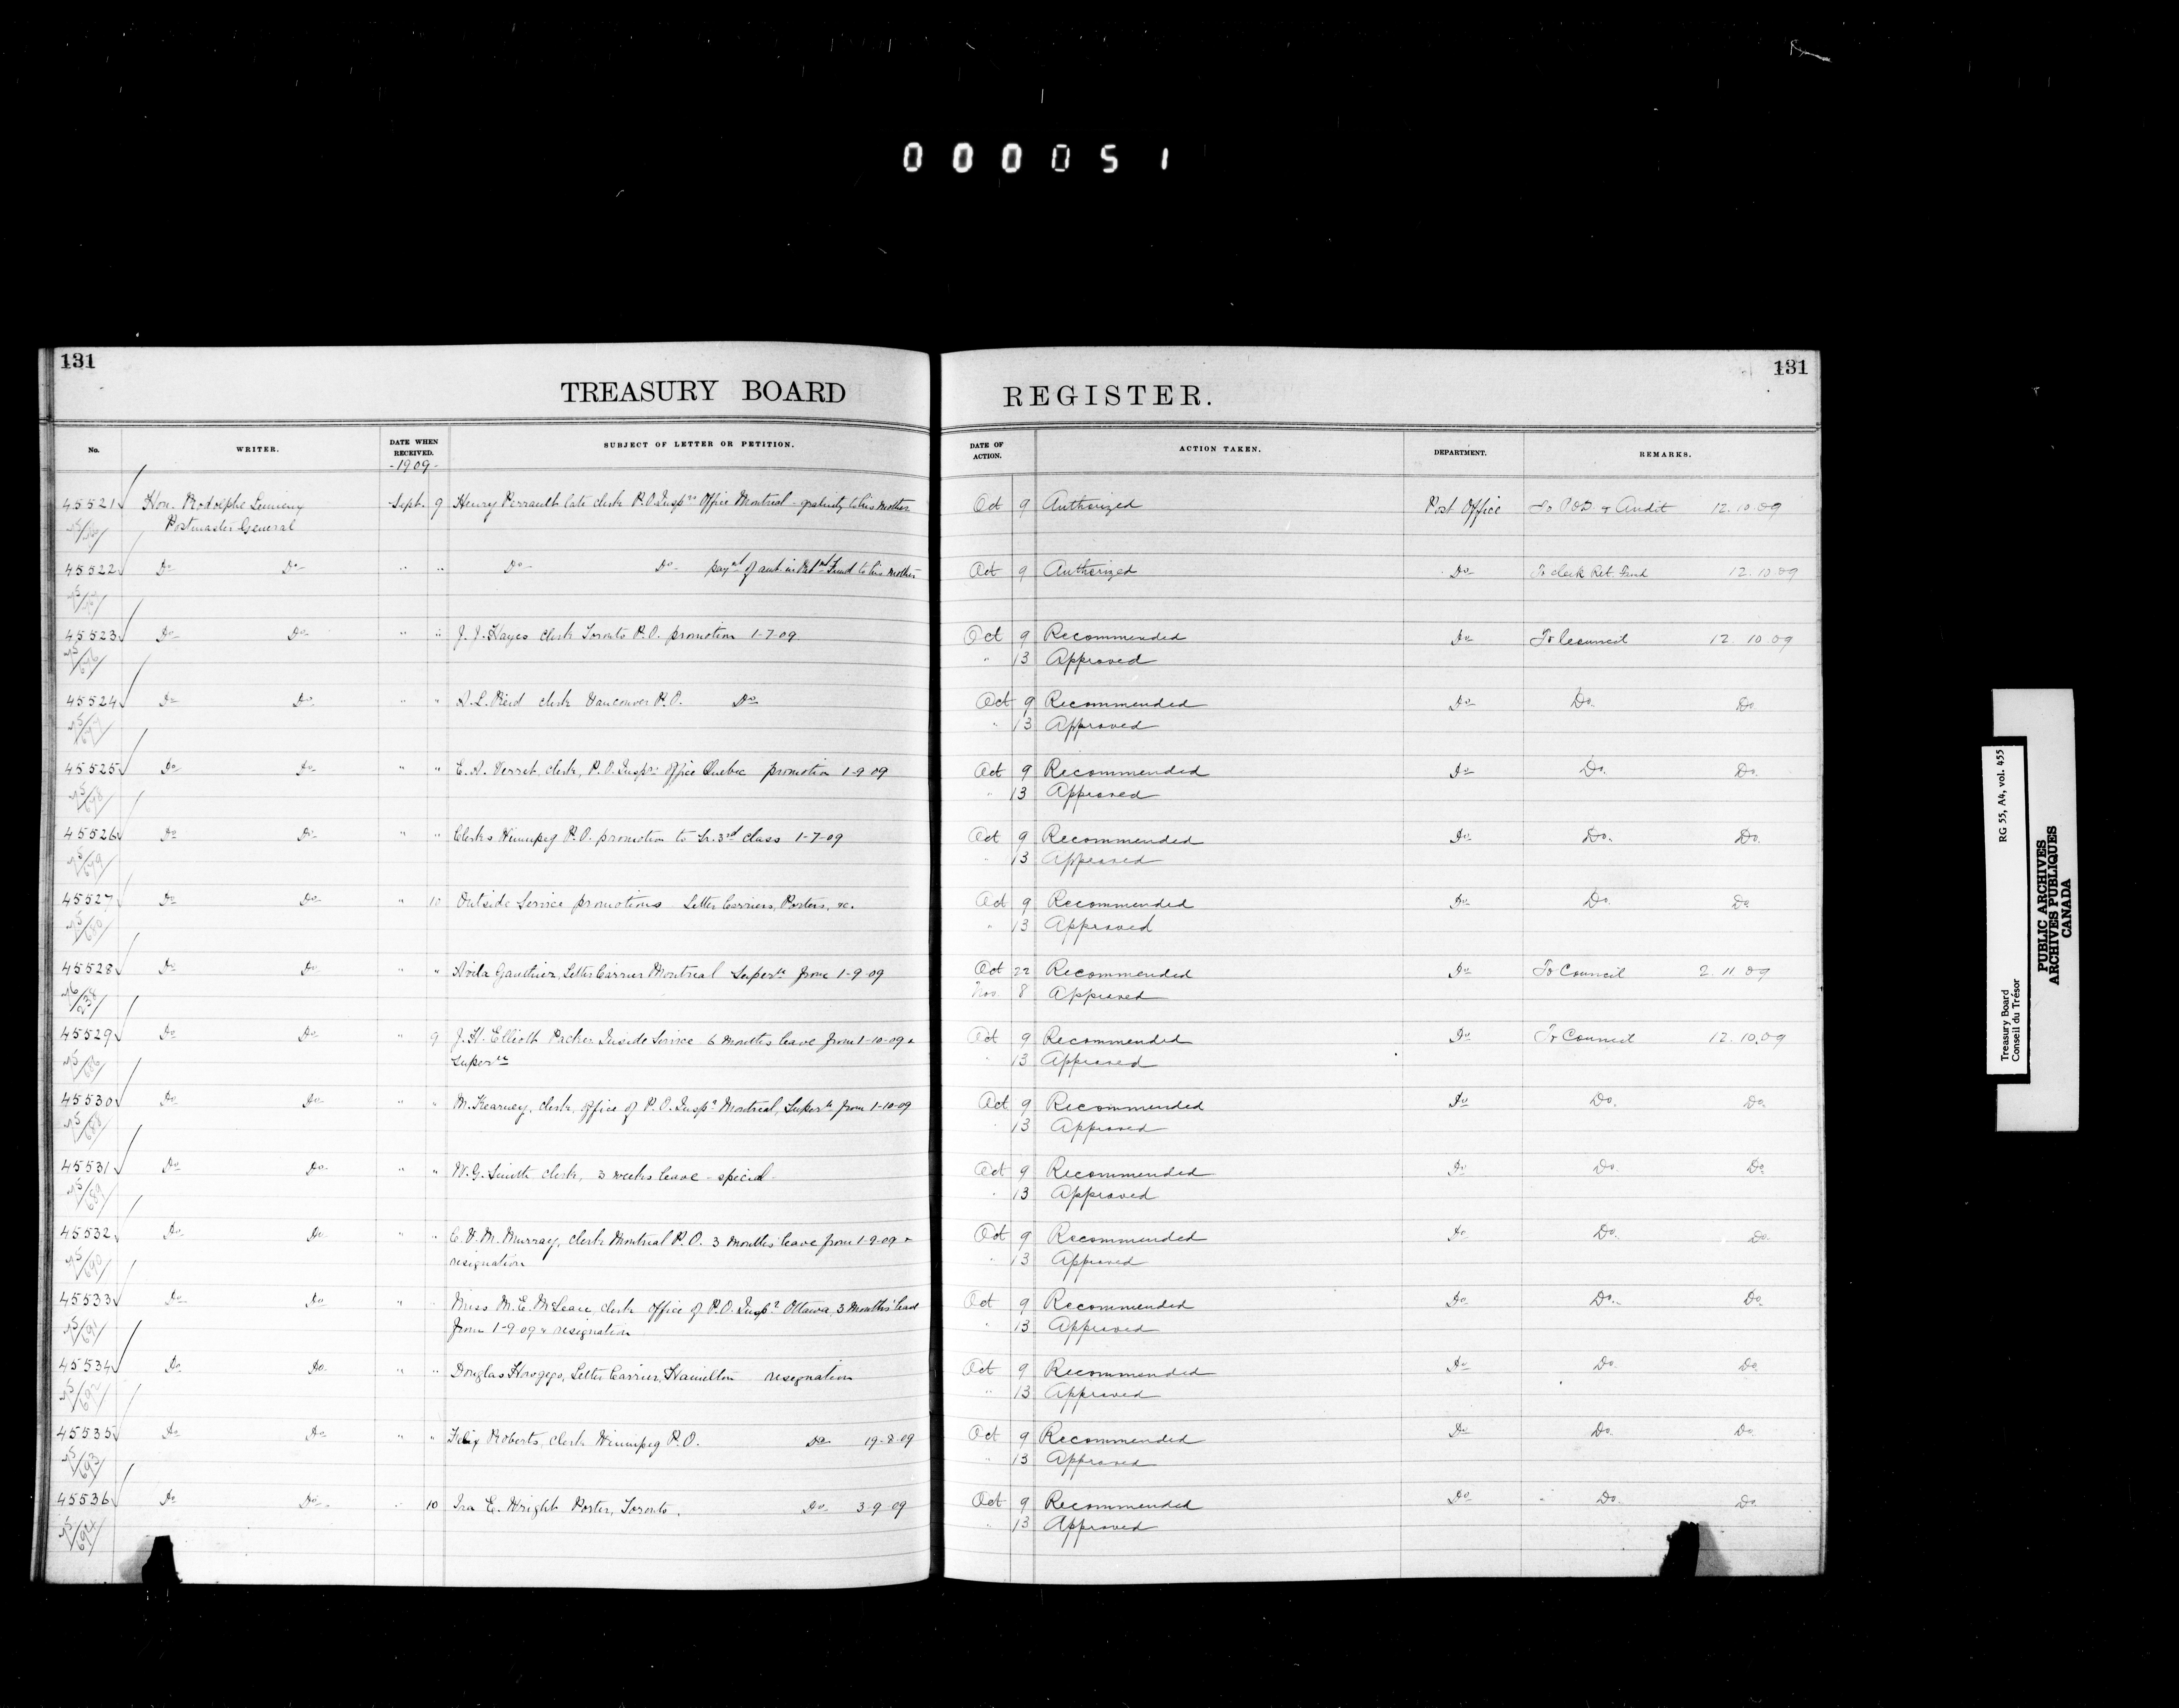 000051
131
131
TREASURY BOARD REGISTER.
No. WRITER. DATE WHEN RECEIVED. SUBJECT OF LETTER OR PETITION. DATE OF ACTION. ACTION TAKEN. DEPARTMENT. REMARKS.
-1909-
45521 Hon. Rodolphe Lemieux Sept. 9 Henry Perrault late clerk P.O. Inspr's Office Montreal - gratuity to his mother Oct 9 Authorized Post Office To P.O.D. & Audit 12.10.09
Postmaster General
45522 Do Do " " Do Do paynt of amt in Retnt Fund to his mother Oct 9 Authorized Do To clerk Ret. Fund 12.10.09
45523 Do Do " " J. J. Hayes clerk Toronto P.O. promotion 1-7-09 Oct 9 Recommended Do To Council 12.10.09
" 13 Approved
45524 Do Do " " A. L. Reid clerk Vancouver P.O. Do Oct 9 Recommended Do Do. Do
" 13 Approved
45525 Do Do " " E. A. Verret, clerk, P.O. Inspr's office Quebec promotion 1-9-09 Oct 9 Recommended Do Do. Do.
" 13 Approved
45526 Do Do " " Clerks Winnipeg P.O. promotion to Sr. 3rd class 1-7-09 Oct 9 Recommended Do Do. Do.
" 13 Approved
45527 Do Do " 10 Outside Service promotions Letter Carriers, Porters, &c. Oct 9 Recommended Do Do. Do
" 13 Approved
45528 Do Do " " Avila Gauthier, Letter Carrier Montreal Superte from 1-9-09 Oct 22 Recommended Do To Council 2.11.09
Nov. 8 Approved
45529 Do Do " 9 J. H. Elliott Packer Inside Service 6 months leave from 1-10-09 & Oct 9 Recommended Do To Council 12.10.09
Superte " 13 Approved
45530 Do Do " " M. Kearney, clerk, office of P.O. Inspr Montreal, Superte from 1-10-09 Oct 9 Recommended Do Do. Do.
" 13 Approved
45531 Do Do " " W. G. Smith clerk, 3 weeks leave - special - Oct 9 Recommended Do Do. Do
" 13 Approved
45532 Do Do " " C. V. M. Murray, clerk Montreal P.O. 3 months' leave from 1-9-09 & Oct 9 Recommended Do Do. Do.
resignation " 13 Approved
45533 Do Do " " Miss M. E. McLean clerk office of P.O. Inspr Ottawa, 3 months' leave Oct 9 Recommended Do Do. Do.
from 1-9-09 & resignation " 13 Approved
45534 Do Do " " Douglas Letter Carrier, Hamilton resignation Oct 9 Recommended Do Do. Do.
" 13 Approved
45535 Do Do " " Felix Roberts, clerk Winnipeg P.O. Do 19-8-09 Oct 9 Recommended Do Do. Do.
" 13 Approved
45536 Do Do " 10 Ira E. Wright Porter, Toronto. Do 3-9-09 Oct 9 Recommended Do Do. Do.
" 13 Approved
Treasury Board RG 55, A4, vol. 455
Conseil du Trésor
PUBLIC ARCHIVES
ARCHIVES PUBLIQUES
CANADA